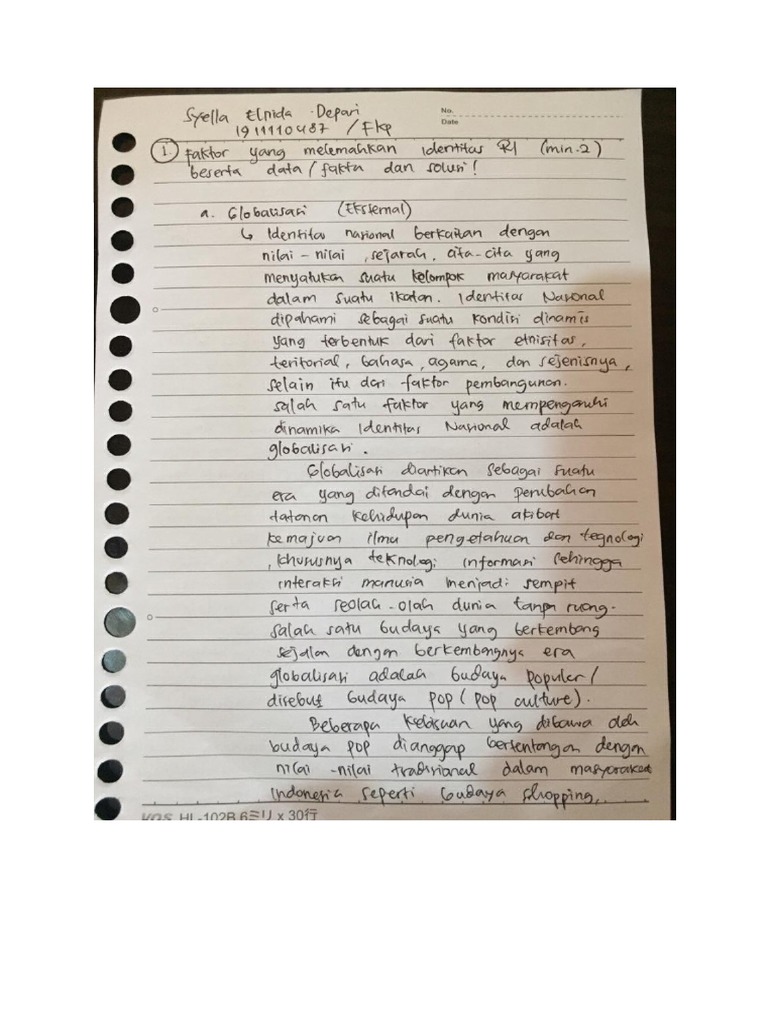 Syella Elpida Depari
1911110487 / FKp
No.
Date
1. Faktor yang melemahkan identitas RI (min.2)
beserta data / fakta dan solusi!
a. Globalisasi (Eksternal)
↳ Identitas nasional berkaitan dengan
nilai-nilai, sejarah, cita-cita yang
menyatukan suatu kelompok masyarakat
dalam suatu ikatan. Identitas Nasional
dipahami sebagai suatu kondisi dinamis
yang terbentuk dari faktor etnisitas,
teritorial, bahasa, agama, dan sejenisnya,
selain itu dari faktor pembangunan.
salah satu faktor yang mempengaruhi
dinamika Identitas Nasional adalah
globalisasi.
Globalisasi diartikan sebagai suatu
era yang ditandai dengan perubahan
tatanan kehidupan dunia akibat
kemajuan ilmu pengetahuan dan tegnologi
, khususnya teknologi informasi sehingga
interaksi manusia menjadi sempit
serta seolah-olah dunia tanpa ruang.
salah satu budaya yang berkembang
sejalan dengan berkembangnya era
globalisasi adalah budaya populer /
disebut budaya pop (pop culture).
Beberapa kebiasaan yang dibawa oleh
budaya pop dianggap bertentangan dengan
nilai-nilai tradisional dalam masyarakat
Indonesia seperti budaya shopping,
HL-102B 6ミリ x 30行